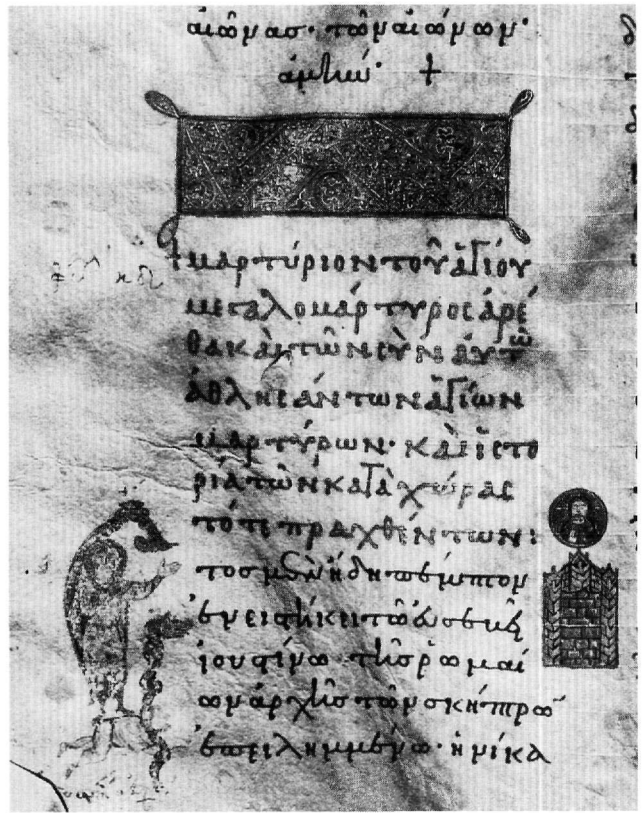 αἰῶνασ· τῶν αἰώνων·
ἀμήν· +
+ μαρτύριον τοῦ ἁγίου
μεγαλομάρτυρος ἀρέ
θα καὶ τῶν σὺν αὐτῶ
ἀθλησάντων ἁγίων
μαρτύρων· καὶ ἱστο
ρία τῶν κατὰ χώρας
τότε πραχθέντων:
τοσ μὲν ἤδη πέμπτον
ἐνειστήκει τῶ εὐσεβεῖ
ἰουστίνω τῆσ ῥωμαί
ων ἀρχῆσ τῶν σκήπρω
ἐπειλημμένω· ἡνίκα